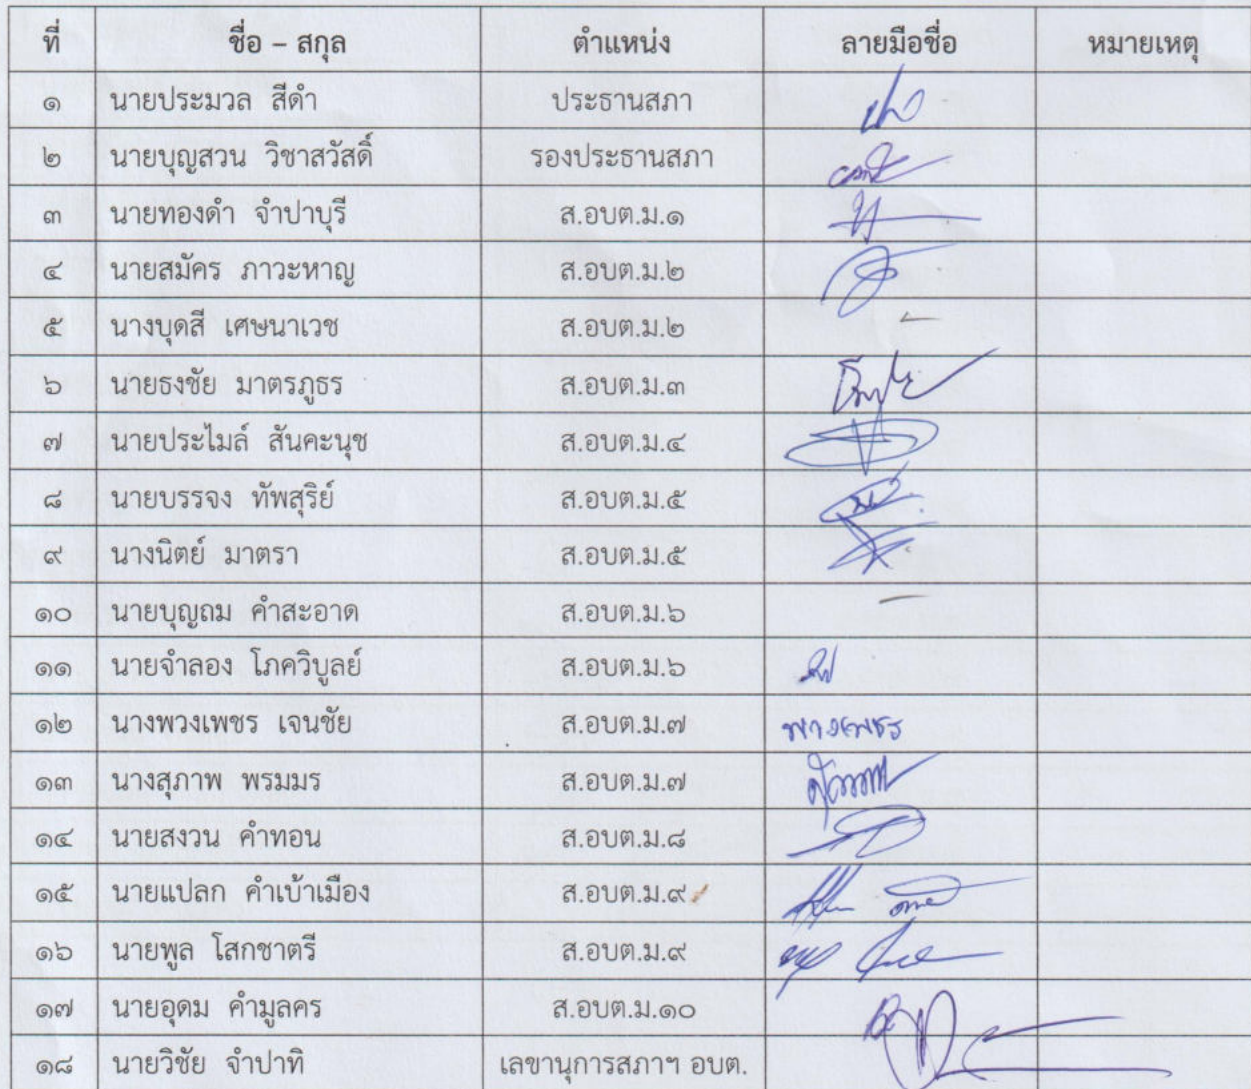 ที่ ชื่อ – สกุล ตำแหน่ง ลายมือชื่อ หมายเหตุ
๑ นายประมวล สีดำ ประธานสภา
๒ นายบุญสวน วิชาสวัสดิ์ รองประธานสภา
๓ นายทองดำ จำปาบุรี ส.อบต.ม.๑
๔ นายสมัคร ภาวะหาญ ส.อบต.ม.๒
๕ นางบุดสี เศษนาเวช ส.อบต.ม.๒
๖ นายธงชัย มาตรภูธร ส.อบต.ม.๓
๗ นายประไมล์ สันคะนุช ส.อบต.ม.๔
๘ นายบรรจง ทัพสุริย์ ส.อบต.ม.๕
๙ นางนิตย์ มาตรา ส.อบต.ม.๕
๑๐ นายบุญถม คำสะอาด ส.อบต.ม.๖
๑๑ นายจำลอง โภควิบูลย์ ส.อบต.ม.๖
๑๒ นางพวงเพชร เจนชัย ส.อบต.ม.๗ พวงเพชร
๑๓ นางสุภาพ พรมมร ส.อบต.ม.๗
๑๔ นายสงวน คำทอน ส.อบต.ม.๘
๑๕ นายแปลก คำเบ้าเมือง ส.อบต.ม.๙
๑๖ นายพูล โสกชาตรี ส.อบต.ม.๙
๑๗ นายอุดม คำมูลคร ส.อบต.ม.๑๐
๑๘ นายวิชัย จำปาทิ เลขานุการสภาฯ อบต.